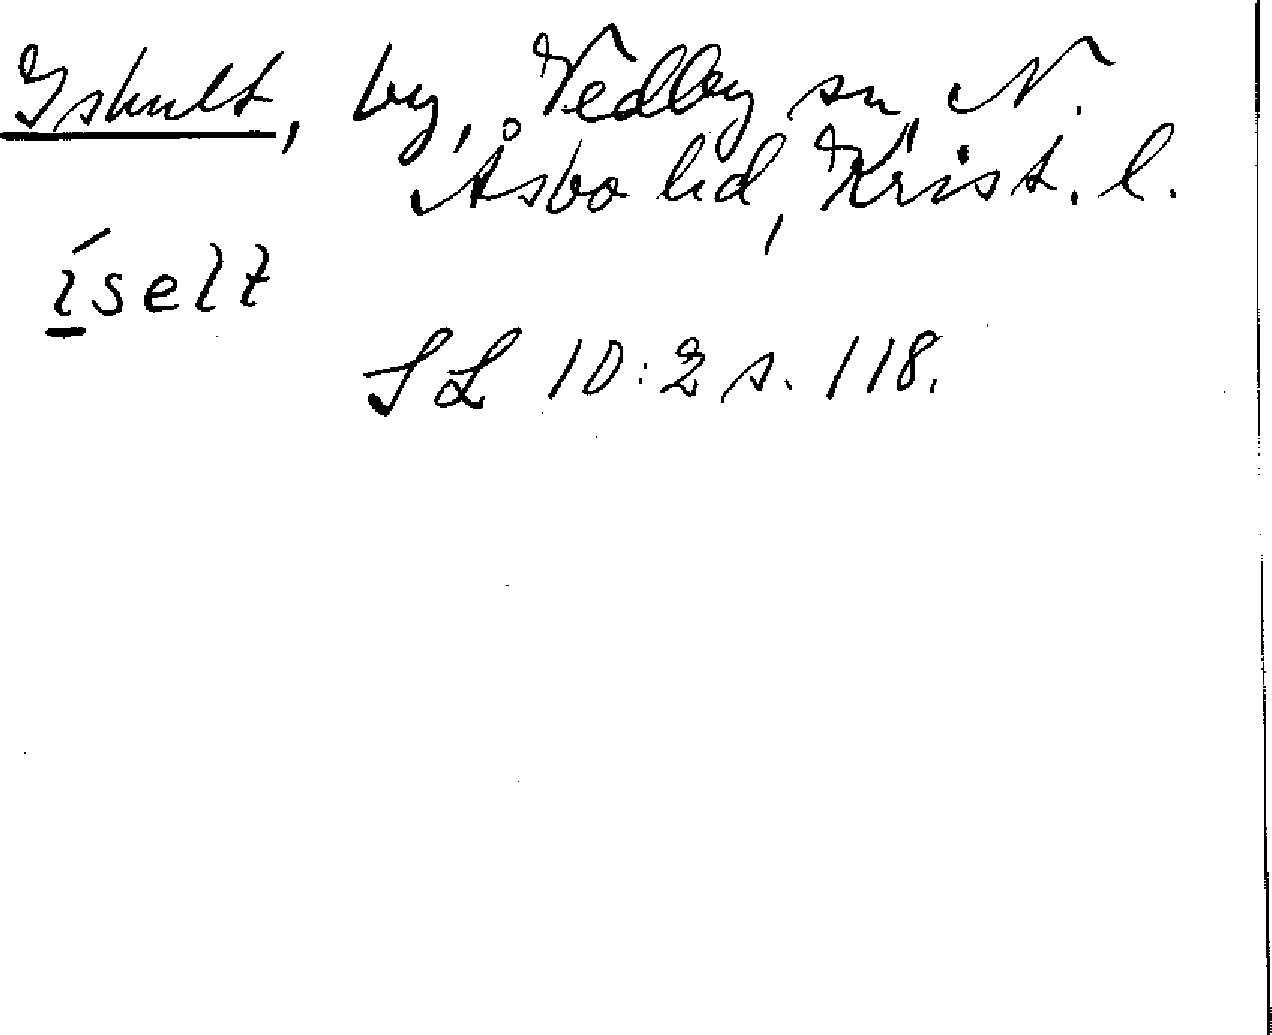 Iskult, by, Vedby sn, N.
Åsbo hd, Krist. l.
íselt
SL 10:2 s. 118.